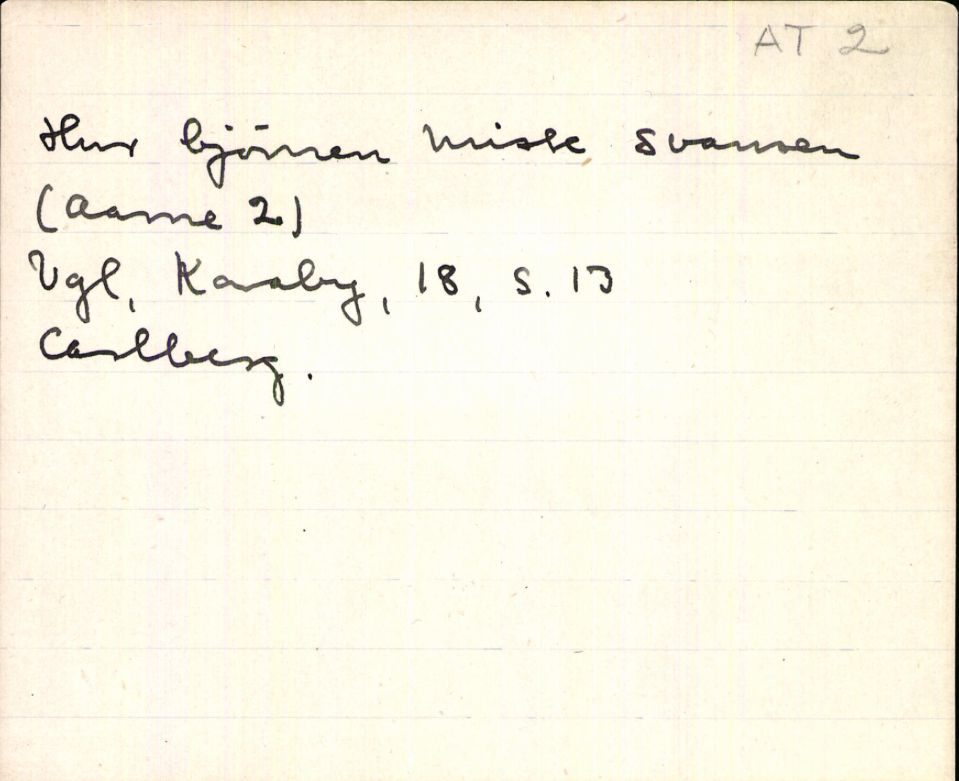 AT 2
Hur björnen miste svansen
(Aarne 2)
Vgl, Karaby, 18, s. 13
Carlberg.